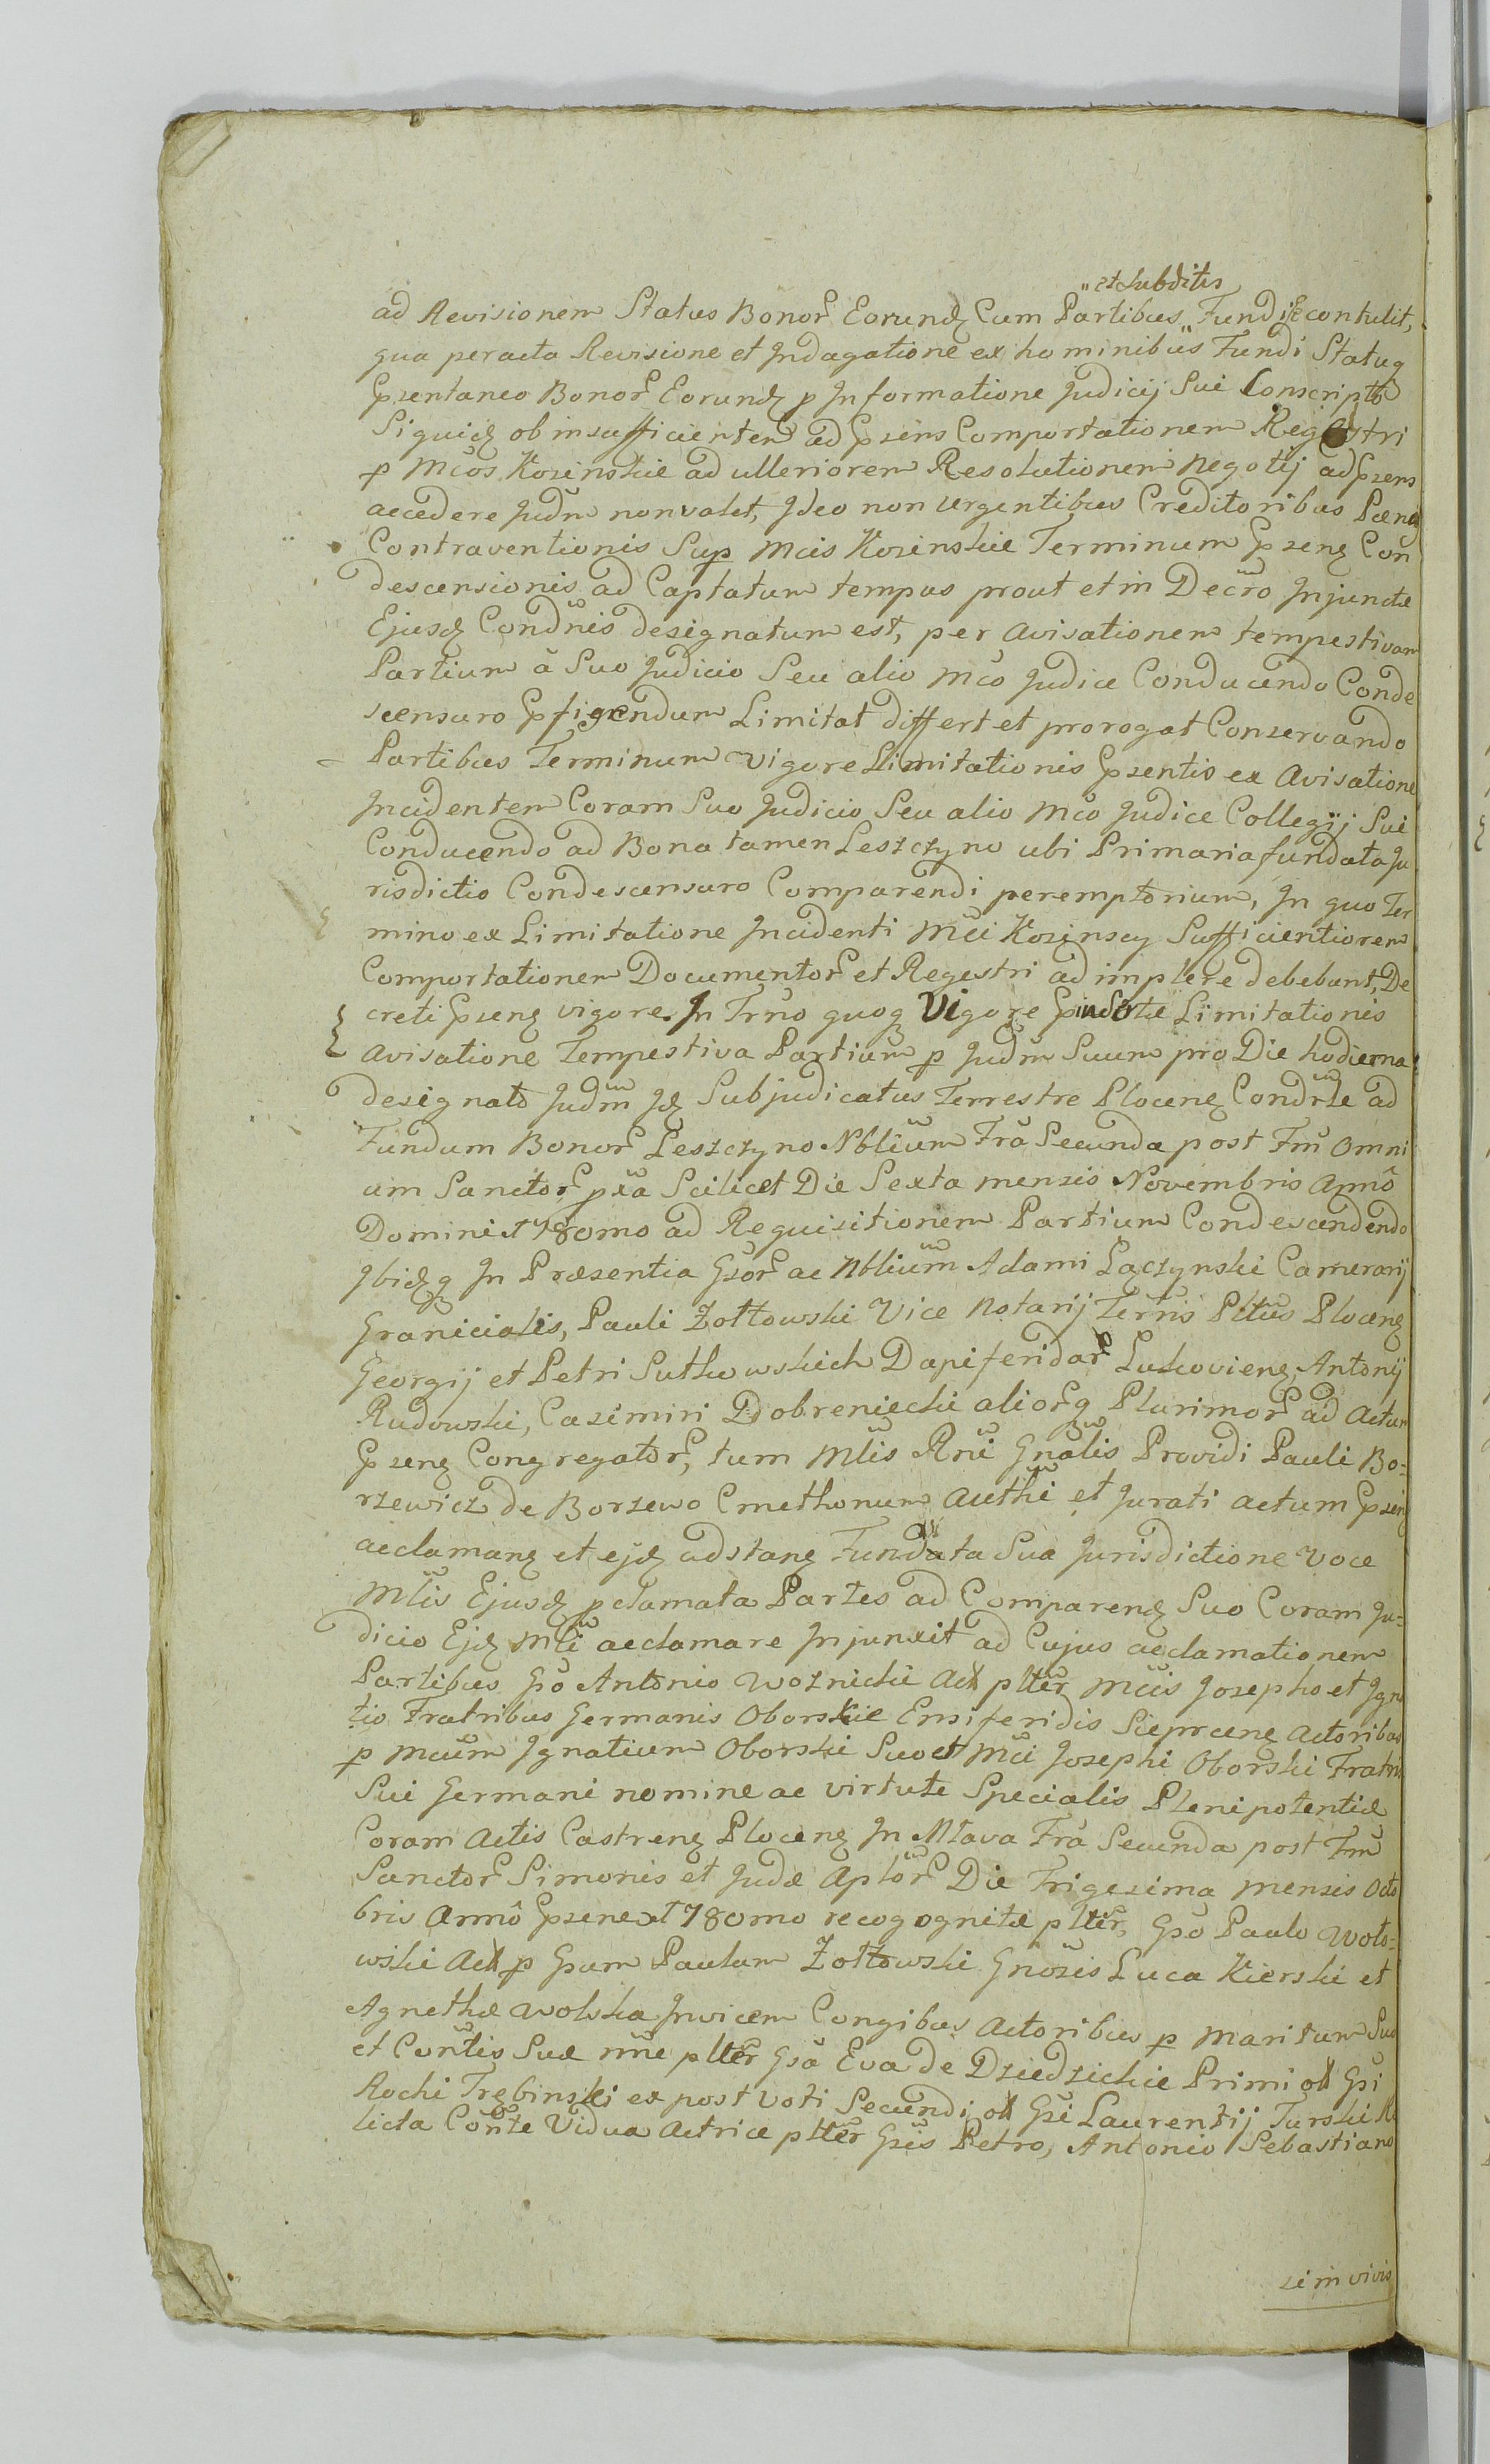 "et Subditis
ad Revisionem Status Bonor Eorund Cum Partibus " Fundi se contulit,
qua peracta Revisione et Indagatione ex hominibus Fundi Statuq
Pzentaneo Bonor Eorund p Informatione Judicij Sui Conscripto
Siquid ob insufficientem ad Pzens Comportationem Regestri
p Mcos Kozinskie ad ulteriorem Resolutionem negotij ad Pzens
accedere Judm non valet, Ideo non urgentibus Creditoribus Pænas
Contraventionis Sup Mcis Kozinskie Terminum Pzens Con
descensionis ad Captatum tempus prout et in Decro Injunctæ
Ejusd Condnis designatum est, per Avisationem tempestivam
Partium à Suo Judicio Seu alio Mco Judice Conducendo Conde
scensuro Pfigendum Limitat differt et prorogat Conservando
Partibus Terminum vigore Limitationis Pzentis ex Avisatione
Incidentem Coram Suo Judicio Seu alio Mco Judice Collegij Sui
Conducendo ad Bona tamen Leszczyno ubi Primaria fundata Ju
risdictio Condescensuro Comparendi peremptorium, In quo Ter
mino ex Limitatione Incidenti Mci Kozinscy Sufficientiorem
Comportationem Documentor et Regestri adimplere debebunt, De
creti Pzens vigore. In Trno quoq Vigore Limitationis
Avisatione Tempestiva Partium p Judm Suum pro Die hodierna
designato Judm Id Subjudicatus Terrestre Plocens ad
Fundum Bonor Leszczyno Nblium Fra Secunda post Fm Omni
um Sanctor pxa Scilicet Die Sexta mensis Novembris Annô
Domini 1780mo ad Requisitionem Partium Condescendendo
Ibidq In Præsentia Gsor ac Nblium Adami Lączynski Camerarij
Granicialis, Pauli Zołtowski Vice Notarij Terris Pltus Plocens
Georgij et Petri Sutkowskich Dapiferidar Lukoviens, Antonij
Rudowski, Casimiri Dobreniecki aliorq Plurimor ad Actum
Pzens Congregator, tum Mlis Rni Gnalis Providi Pauli Bo=
rzewicz de Borzewo Cmethonum Authi et Jurati actum Pzens
acclamans et ejd adstans Fundata Sua Jurisdictione Voce
Mlis Ejusd pclamata Partes ad Comparens Suo Coram Ju=
dicio Ejd Mli acclamare Injunxit ad Cujus acclamationem
Partibus Gso Antonio Woznicki Act plter Mcis Josepho et Igna
tio Fratribus Germanis Oborskie Ensiferidis Sieprcens Actoribus
p Mcum Ignatium Oborski Suo et Mci Josephi Oborski Fratris
Sui Germani nomine ac virtute Specialis Plenipotentiæ
Coram Actis Castrens Plocens In Mlava Fra Secunda post Fm
Sanctor Simonis et Judæ Aptor Die Trigesima mensis Octo
bris Annô Pzene 1780mo recogognitæ plter, Gso Paulo Woło=
wski Act p Gsum Paulum Zołtowski Gnosis Luca Kierski et
Agnethæ Wolska Invicem Congibus Actoribus p Maritum Suo
et Contis Suæ nne plter Gsa Eva de Dziedzickie Primi ol Gsi
Rochi Trębinski ex post Voti Secundi ol Gsi Laurentij Turski Re
licta Conte Vidua Actrice plter Gsis Petro, Antonio Sebastiano